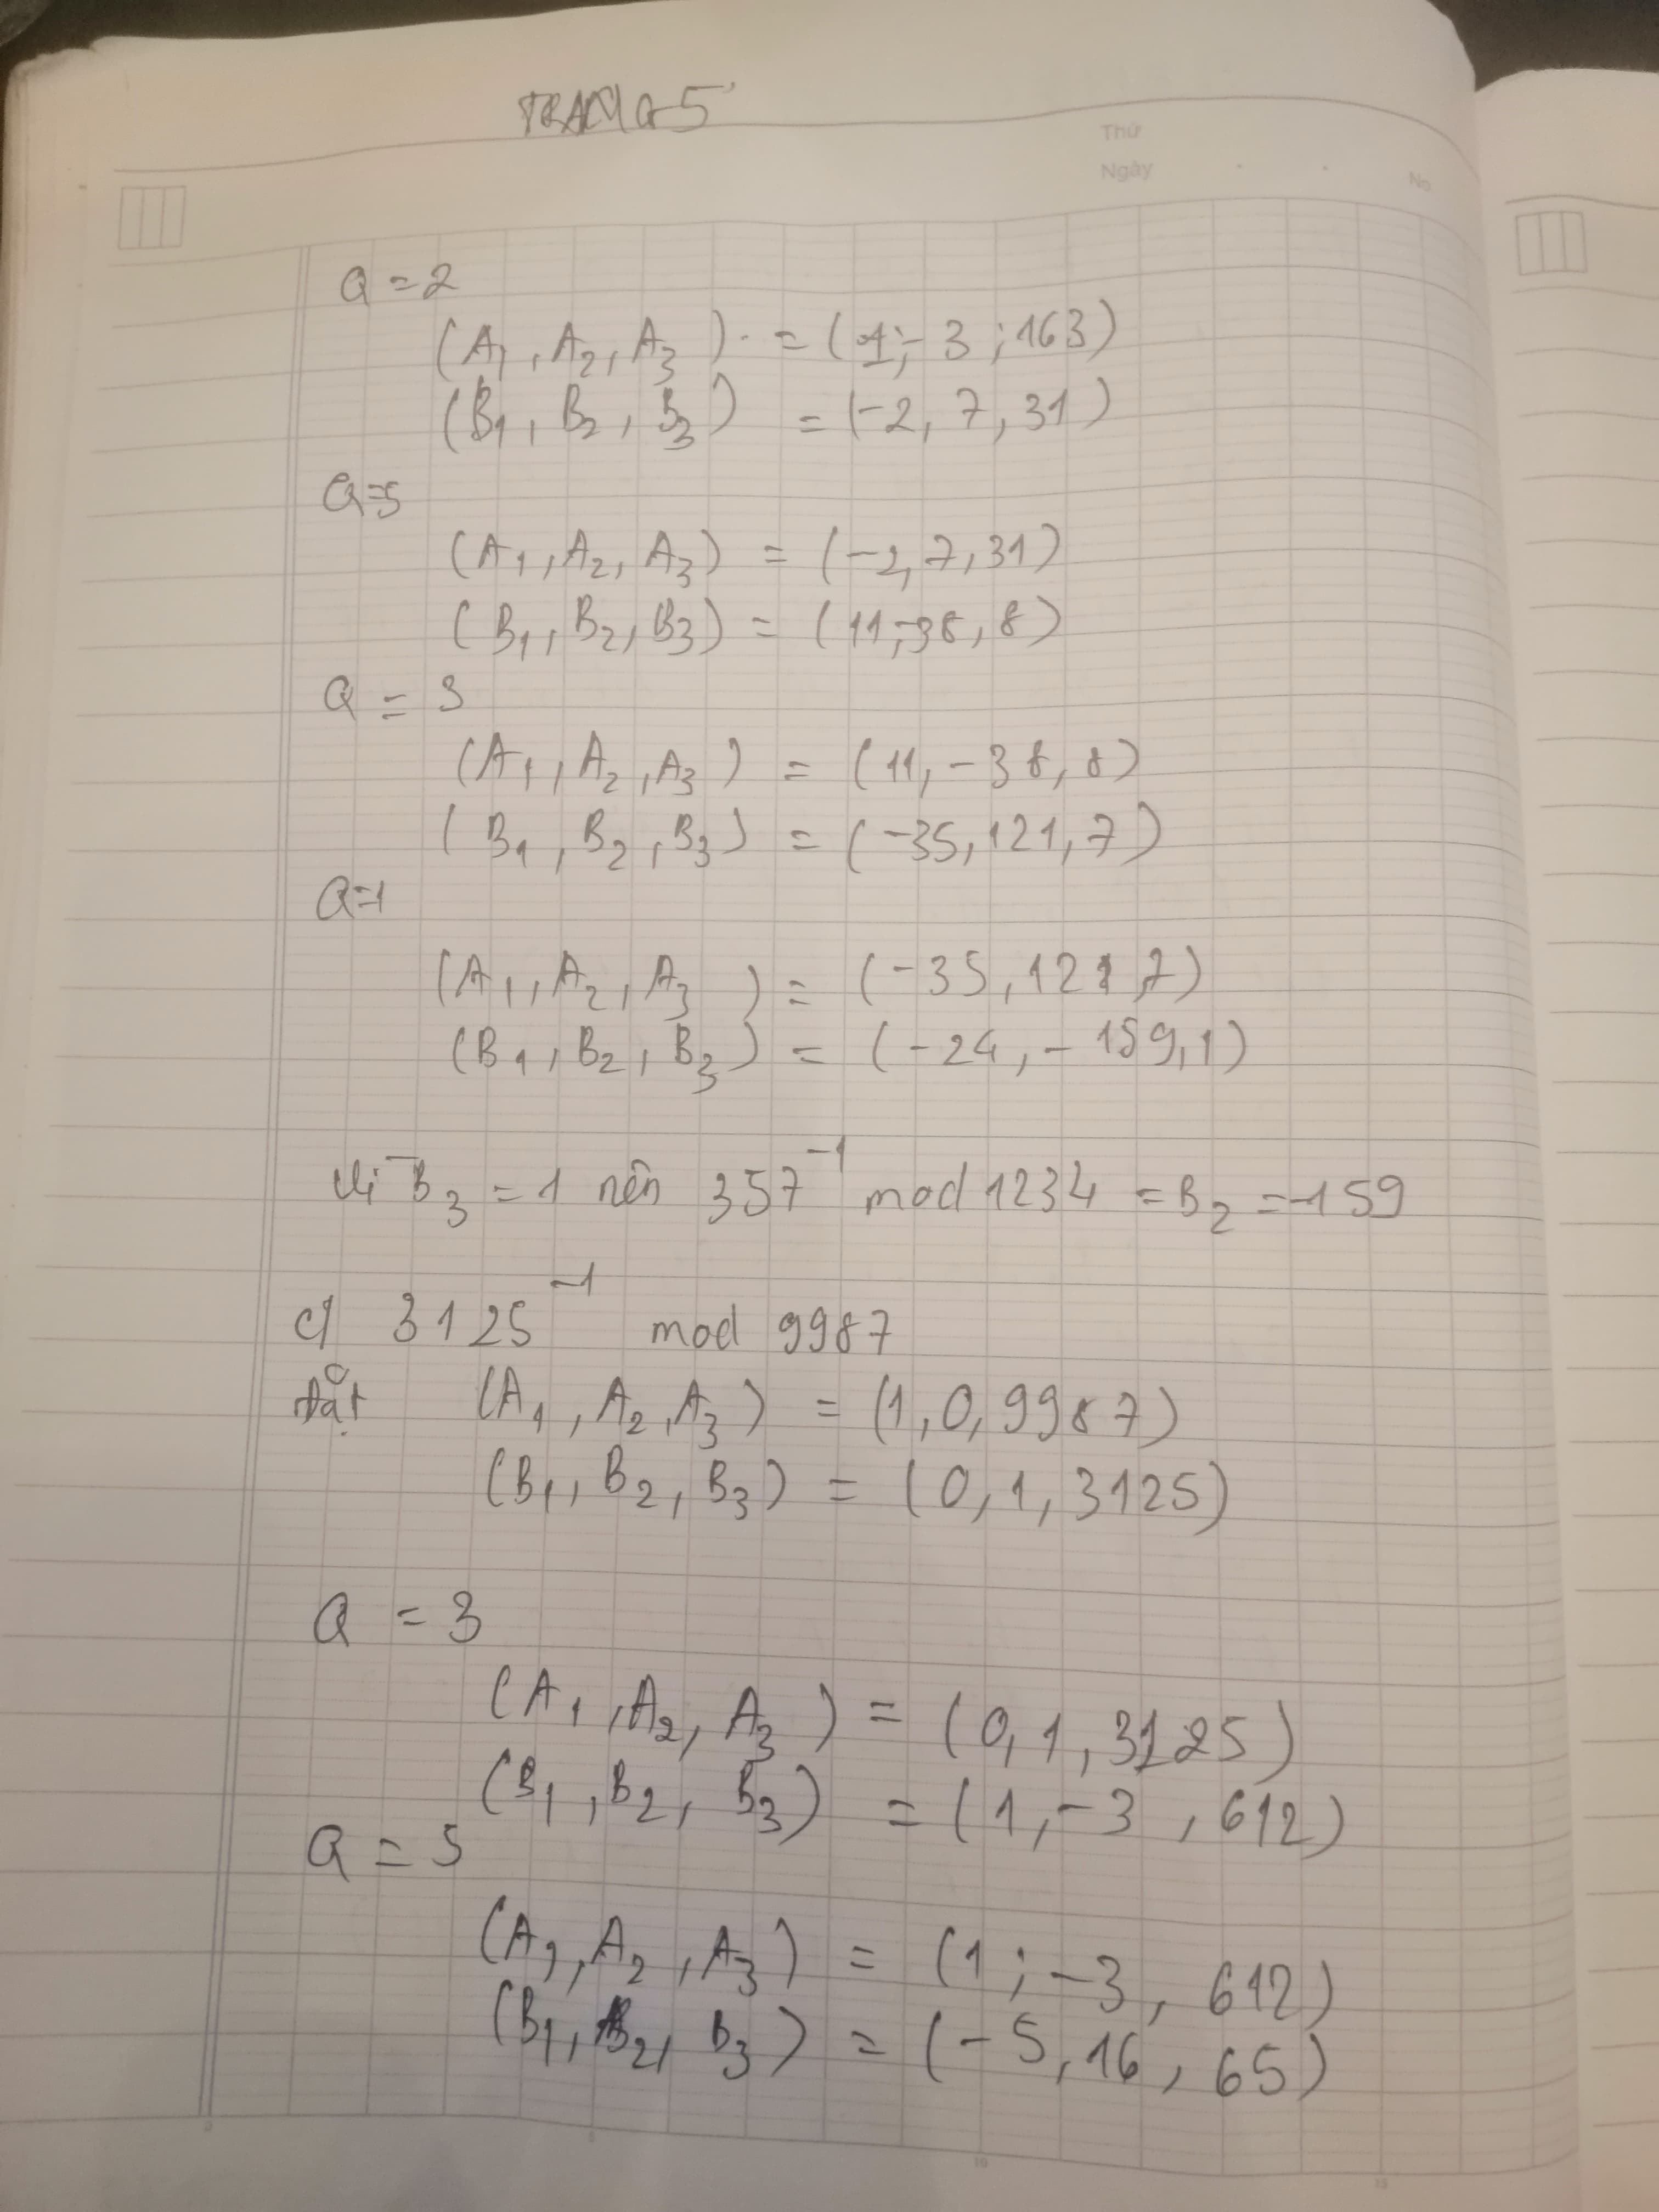 TRANG 5
Thứ
Ngày
No
Q = 2
(A₁, A₂, A₃) = (1; -3; 163)
(B₁, B₂, B₃) = (-2, 7, 31)
Q=5
(A₁, A₂, A₃) = (-2, 7, 31)
(B₁, B₂, B₃) = (11, -38, 8)
Q = 3
(A₁, A₂, A₃) = (11, -38, 8)
(B₁, B₂, B₃) = (-35, 121, 7)
Q=1
(A₁, A₂, A₃) = (-35, 121, 7)
(B₁, B₂, B₃) = (-24, -159, 1)
Vì B₃ = 1 nên 357⁻¹ mod 1234 = B₂ = -159
c/ 3125⁻¹ mod 9987
Đặt (A₁, A₂, A₃) = (1, 0, 9987)
(B₁, B₂, B₃) = (0, 1, 3125)
Q = 3
(A₁, A₂, A₃) = (0, 1, 3125)
(B₁, B₂, B₃) = (1, -3, 612)
Q = 5
(A₁, A₂, A₃) = (1; -3, 612)
(B₁, B₂, B₃) = (-5, 16, 65)
5
10
15